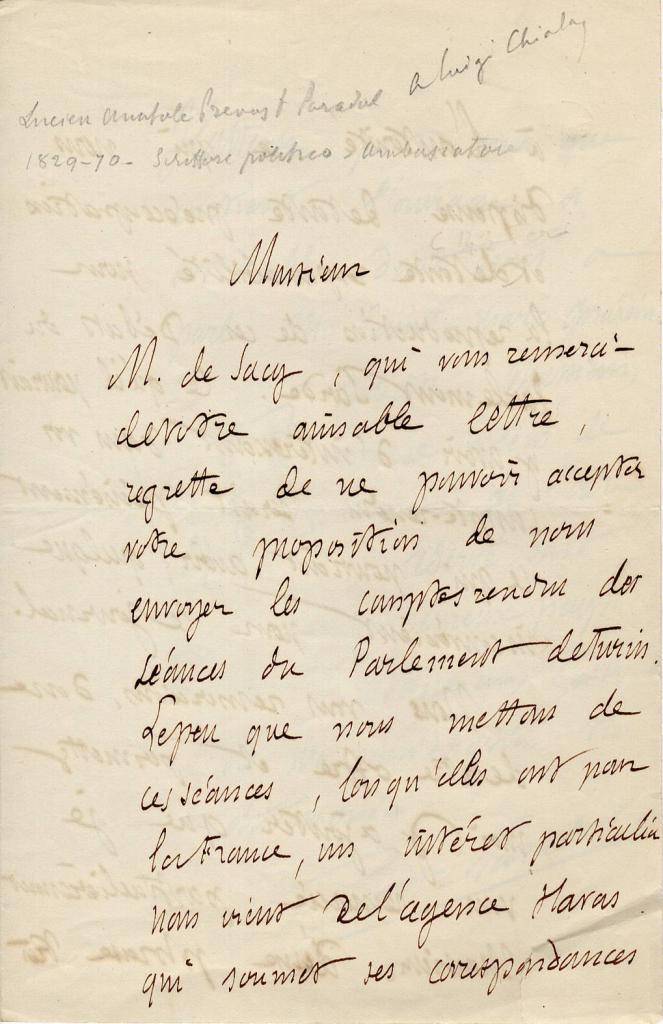 a Luigi Chiala
Lucien Anatole Prevost Paradol
1829-70 - Scrittore politico e ambasciatore
Monsieur
M. de Sacy, qui vous remercie
de votre aimable lettre,
regrette de ne pouvoir accepter
votre proposition de nous
envoyer les comptes rendus des
séances du Parlement de Turin.
Le peu que nous mettons de
ces séances, lorsqu'elles ont pour
la France, un intérêt particulier
nous vient de l'agence Havas
qui soumet ses correspondances